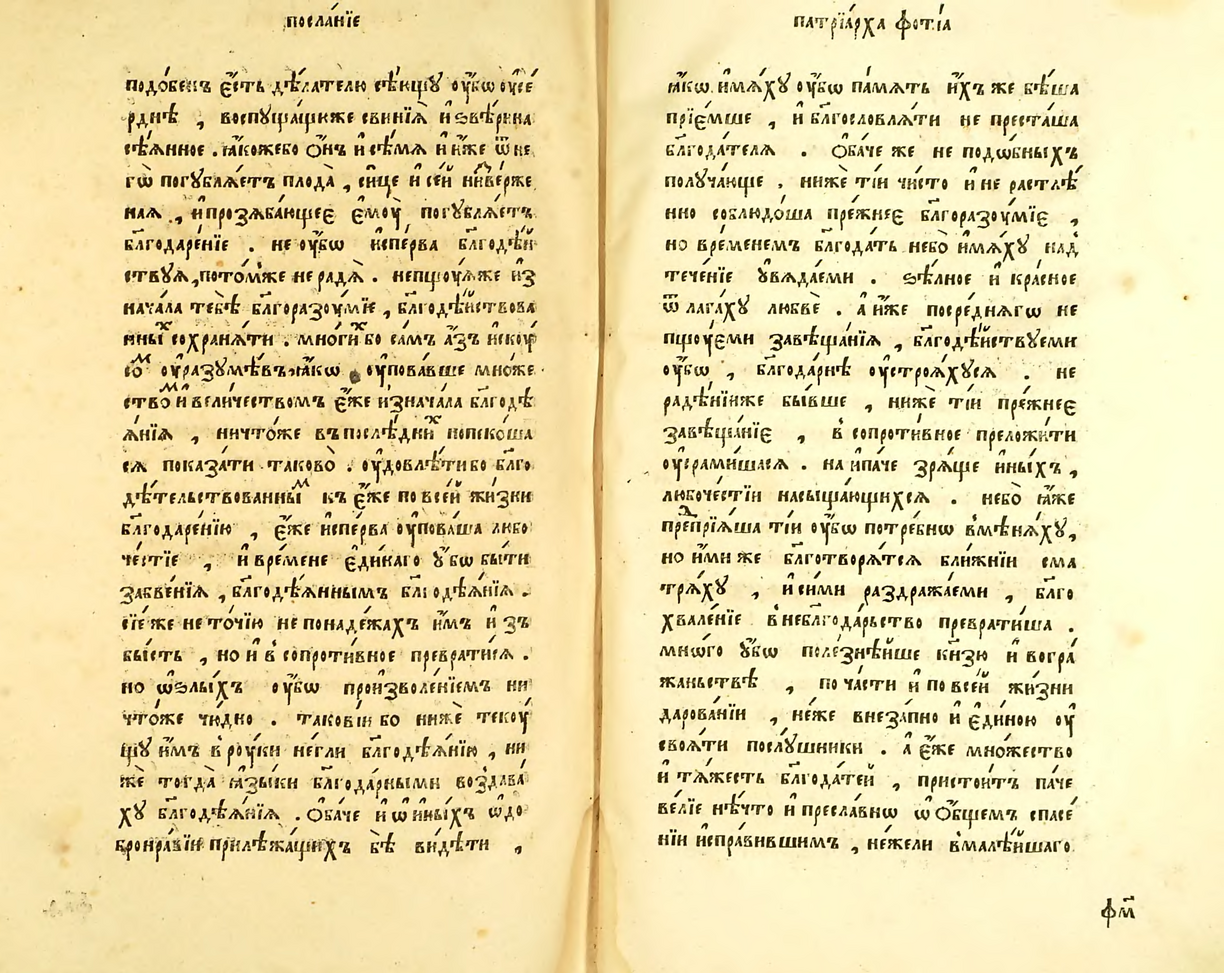 посла́нїе
подо́бенъ є҆́сть дѣ́лателю сѣ́ющꙋ ᲂу҆́бѡ ᲂу҆се́
рднѣ , воспꙋща́ющиже свинїѧ̀ и҆ ѕвѣ́рина
сѣ́ѧнное . ꙗ҆́коже бо ѻ҆́нъ и҆ сѣ́мѧ и҆ и҆́же ѿ не
гѡ̀ погꙋблѧ́етъ плода̀ , си́це и҆ се́й
наѧ , и҆ прозѧба́ющеє є҆мᲂу̀ погꙋблѧ́етъ
бл҃годаре́нїе . не ᲂу҆́бѡ и҆спе́рва бл҃годѣ́й
ствꙋѧ , пото́мже не радѧ̀ . непщꙋ́ѧже и҆з
нача́ла тебѣ̀ бл҃горазᲂу́мїе , бл҃годѣ́йствова
нныⷯ сохранѧ́ти . мно́гиⷯ бо са́мъ а҆́зъ и҆скᲂу́
соⷨ ᲂу҆разꙋмѣ́въ ꙗ҆́кѡ ᲂу҆пова́вше мно́же
ствоⷨ и҆ вели́чествомъ є҆́же и҆знача́ла бл҃годѣ
ѧ́нїѧ , ничто́же въ послѣ́дниⷯ попеко́ша
сѧ показа́ти таково̀ . ᲂу҆довлѣ́ти бо бл҃го
дѣ́тельствованныⷨ къ є҆́же по все́й жи́зни
благодаре́нїю , є҆́же и҆спе́рва ᲂу҆пова́ша любо
че́стїе , и҆ вре́мене є҆ди́наго ꙋ҆́бѡ бы́ти
забве́нїѧ , бл҃годѣ́ѧннымъ бл҃годѣѧ́нїѧ .
сїе́ же не то́чїю не понаде́жахъ и҆̀мъ и҆ зъ
бы́сть , но и҆ в сопроти́вное преврати́сѧ .
но ѡ҆ ѕлы́хъ ᲂу҆́бѡ произволе́нїемъ ни
что́же чю́дно . такові́и бо нижѐ текᲂу́
щꙋ и҆̀мъ в рᲂу́ки не́гли бл҃годѣѧ́нїю , ни
жѐ тогда̀ ꙗ҆зы́ки бл҃года́рными воздава́
хꙋ бл҃годѣѧ́нїѧ . Ѻ҆ба́че и҆ ѡ҆ и҆ны́хъ ѡ҆ до
бронра́вїи прилѣжа́щихъ бѣ̀ ви́дѣти ,
патрїа́рха фо́тїа
ꙗ҆́кѡ и҆мѧ́хꙋ ᲂу҆́бѡ па́мѧть и҆́хъ же бѣ́ша
прїе́мше , и҆ бл҃гословлѧ́ти не преста́ша
бл҃года́телѧ . Ѻ҆ба́че же не подѡ́бныхъ
полꙋча́юще , нижѐ ті́и чи́сто и҆ не растлѣ́
нно соблюдо́ша пре́жнеє бл҃горазᲂу́мїе ,
но вре́менемъ бл҃года́ть небо̀ и҆мѧ́хꙋ над
тече́нїе ꙋ҆вѧда́еми . ѕѣ́лное и҆ кра́сное
ѿ лага́хꙋ любвѐ . а҆ и҆̀же посре́днѧгѡ не
пщᲂу́еми завѣща́нїѧ , бл҃годѣ́йствꙋеми
ᲂу҆́бѡ , бл҃года́рнѣ ᲂу҆строѧ́хꙋсѧ . не
радѣ́нїиже бы́вше , нижѐ ті́и пре́жнеє
завѣща́нїє , в сопроти́вное преложи́ти
ᲂу҆срами́шасѧ . на и҆па́че зрѧ́ще и҆ны́хъ ,
любоче́стїи насыща́ющихсѧ . небо̀ ꙗ҆́же
препрїѧ́ша ті́и ᲂу҆́бѡ потре́бнѡ вмѣнѧ́хꙋ ,
но и҆́ми же бл҃готворѧ́тсѧ бли́жнїи сма
трѧ́хꙋ , и҆ си́ми раздража́еми , бл҃го
хвале́нїе в неблагода́рьство преврати́ша .
мно́гѡ ꙋ҆́бѡ поле́знѣйше кн҃зю и҆ вогра́
жаньствѣ , по ча́сти и҆ по все́й жи́зни
дарова́нїи , не́же внеза́пно и҆ є҆ди́ною ᲂу҆
своѧ́ти послꙋ́шники . а҆ є҆́же мно́жество
и҆ тѧ́жесть бл҃года́тей , присто́итъ па́че
ве́лїе нѣ́что и҆ пресла́внѡ ѡ҆ Ѻ҆́бщемъ спасе́
нїи и҆спра́вившимъ , не́жели вмалѣ́йшаго
фм҃